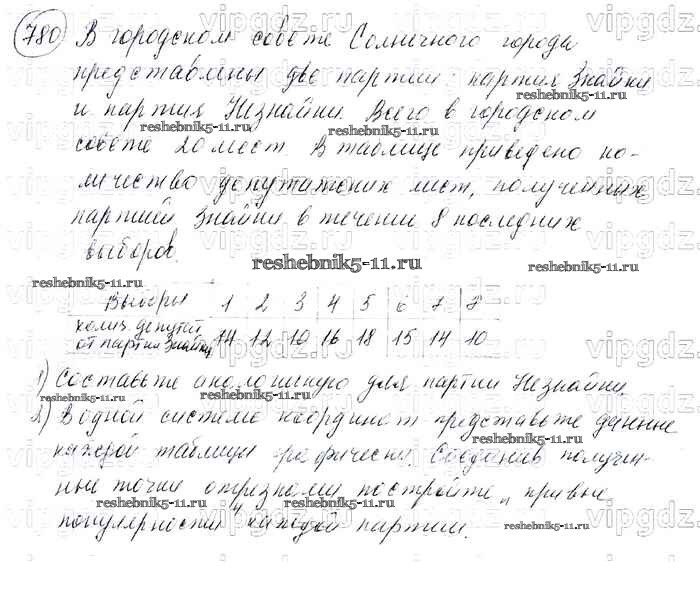 780 В городском совете Солнечного города
представлены две партии: партия Знайки
и партия Незнайки. Всего в городском
совете 20 мест. В таблице приведено ко-
личество депутатских мест, полученных
партией Знайки в течении 8 последних
выборов.
Выборы 1 2 3 4 5 6 7 8
колич. депутат. от партии Знайки 14 12 10 16 18 15 14 10
1) Составьте аналогичную для партии Незнайки.
2) В одной системе координат представьте данные
каждой таблицы графически. Соединив получен-
ные точки отрезками постройте „кривые
популярности" каждой партии.
vipgdz.ru
reshebnik5-11.ru